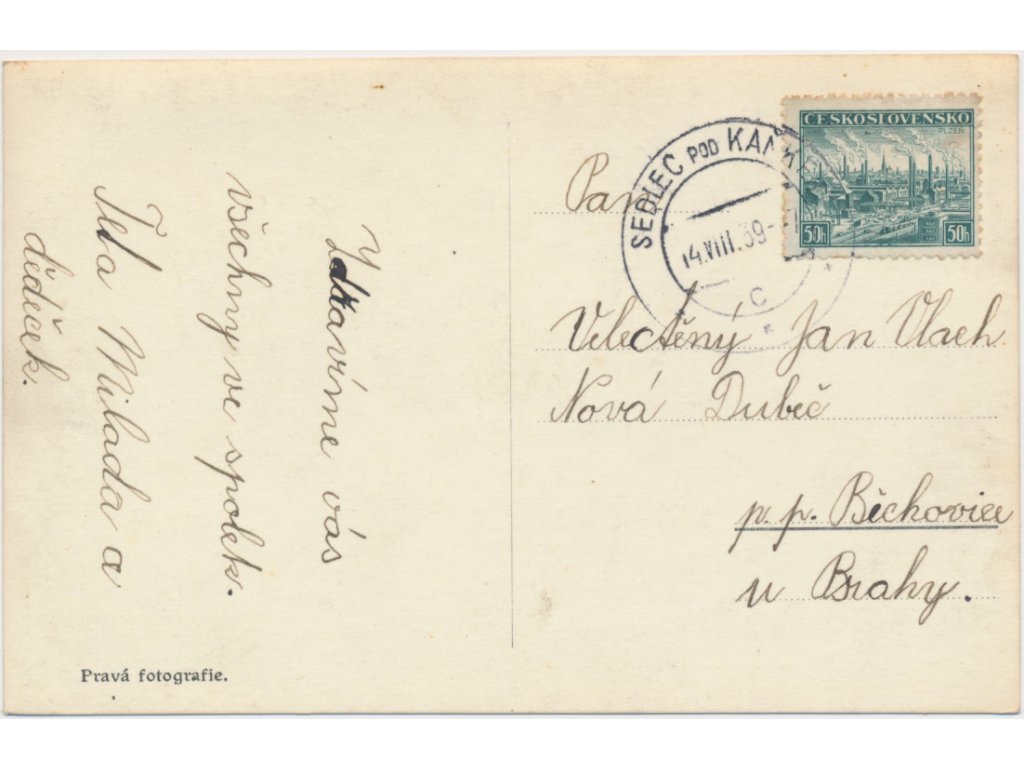 Zdravíme vás
všechny ve spolek.
Teta Milada a
dědeček.
Pravá fotografie.
ČESKOSLOVENSKO
PLZEŇ
50h 50h
SEDLEC POD KAŇK
14.VIII.39
C
Pan
Velectěný Jan Vlach
Nová Dubeč
p. p. Běchovice
u Prahy.